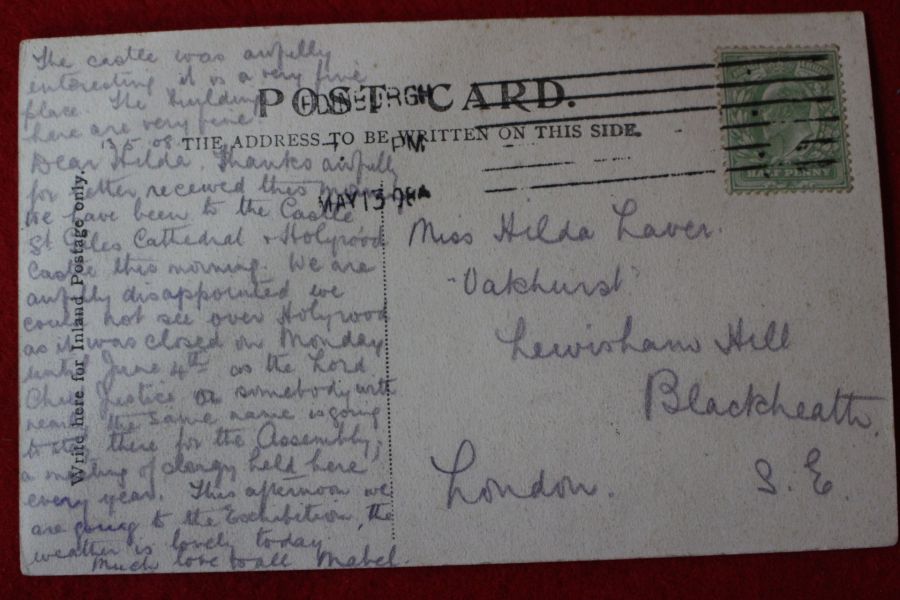 The castle was awfully
interesting it is a very fine
place. The buildings
here are very fine
POST CARD.
EDINBURGH
THE ADDRESS TO BE WRITTEN ON THIS SIDE.
PM
MAY 13
HALF PENNY
Write here for Inland Postage only.
13 5 08
Dear Hilda. Thanks awfully
for letter received this morning
We have been to the Castle
St Giles Cathedral & Holyrood
Castle this morning. We are
awfully disappointed we
could not see over Holyrood
as it was closed on Monday
until June 4th as the Lord
Chief Justice or somebody with
nearly the same name is going
to stay there for the Assembly,
a meeting of clergy held here
every year. This afternoon we
are going to the Exhibition, the
weather is lovely today
Much love to all Mabel.
Miss Hilda Laver.
"Oakhurst"
Lewisham Hill
Blackheath.
London. S. E.